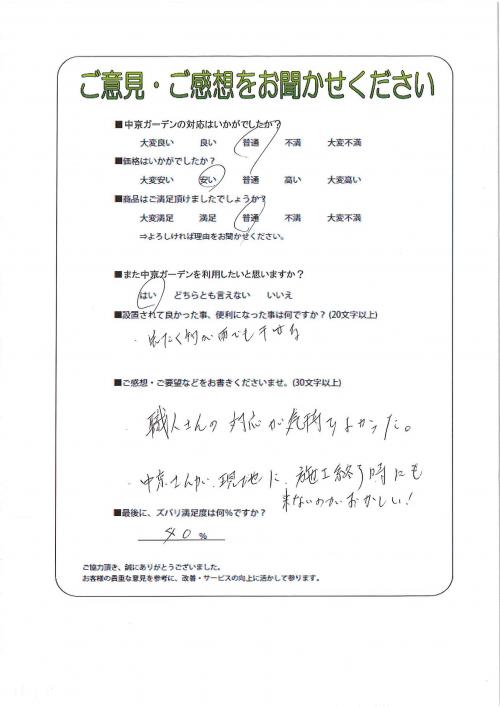 ご意見・ご感想をお聞かせください
■中京ガーデンの対応はいかがでしたか？
大変良い 良い 普通 不満 大変不満
■価格はいかがでしたか？
大変安い 安い 普通 高い 大変高い
■商品はご満足頂けましたでしょうか？
大変満足 満足 普通 不満 大変不満
⇒よろしければ理由をお聞かせください。
■また中京ガーデンを利用したいと思いますか？
はい どちらとも言えない いいえ
■設置されて良かった事、便利になった事は何ですか？(20文字以上)
雨でも干せる
■ご感想・ご要望などをお書きくださいませ。(30文字以上)
・職人さんの対応が気持ちよかった。
・中京さんが、現地に、施工終了時にも
来ないのがおかしい！
■最後に、ズバリ満足度は何%ですか？
%
ご協力頂き、誠にありがとうございました。
お客様の貴重な意見を参考に、改善・サービスの向上に活かして参ります。